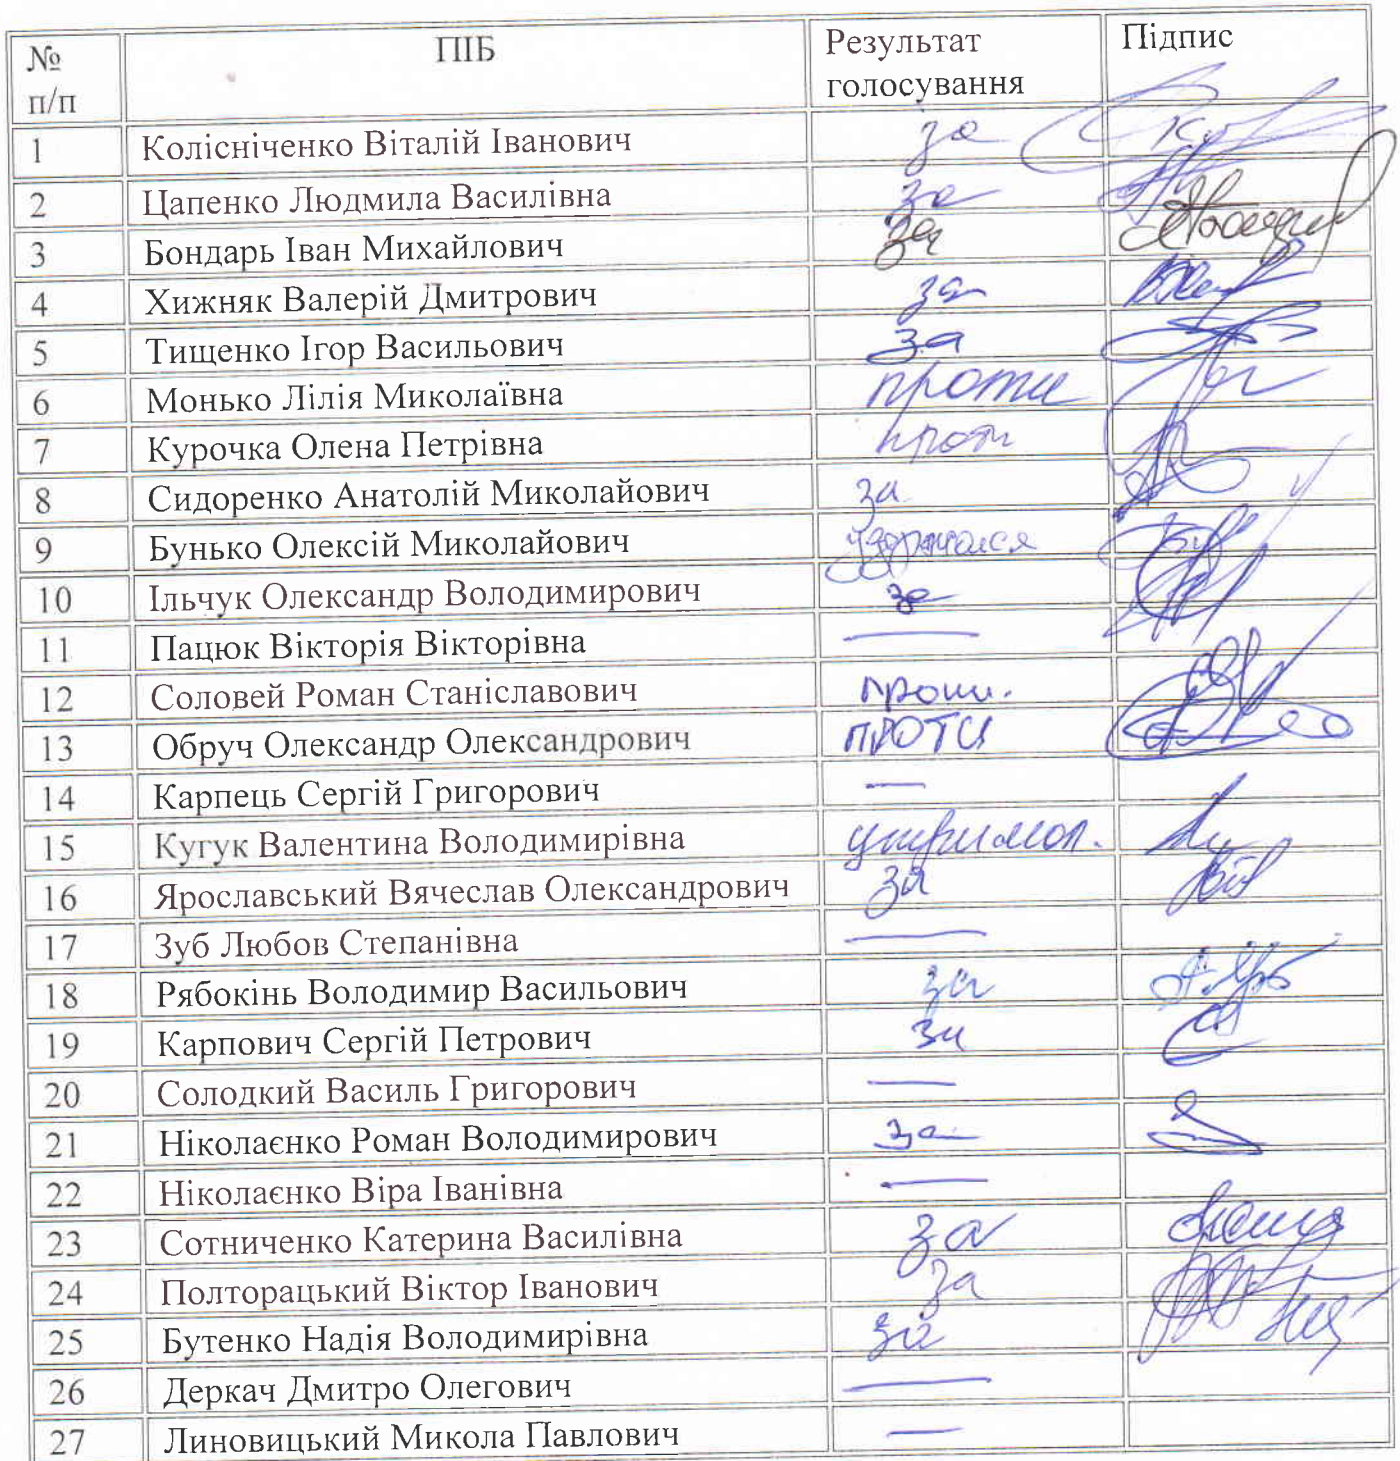 № п/п ПІБ Результат голосування Підпис
1 Колісніченко Віталій Іванович за
2 Цапенко Людмила Василівна за
3 Бондарь Іван Михайлович за
4 Хижняк Валерій Дмитрович за
5 Тищенко Ігор Васильович за
6 Монько Лілія Миколаївна проти
7 Курочка Олена Петрівна проти
8 Сидоренко Анатолій Миколайович за
9 Бунько Олексій Миколайович
10 Ільчук Олександр Володимирович за
11 Пацюк Вікторія Вікторівна —
12 Соловей Роман Станіславович проти.
13 Обруч Олександр Олександрович ПРОТИ
14 Карпець Сергій Григорович —
15 Кугук Валентина Володимирівна
16 Ярославський Вячеслав Олександрович за
17 Зуб Любов Степанівна —
18 Рябокінь Володимир Васильович за
19 Карпович Сергій Петрович за
20 Солодкий Василь Григорович —
21 Ніколаєнко Роман Володимирович за
22 Ніколаєнко Віра Іванівна —
23 Сотниченко Катерина Василівна за
24 Полторацький Віктор Іванович за
25 Бутенко Надія Володимирівна за
26 Деркач Дмитро Олегович —
27 Линовицький Микола Павлович —